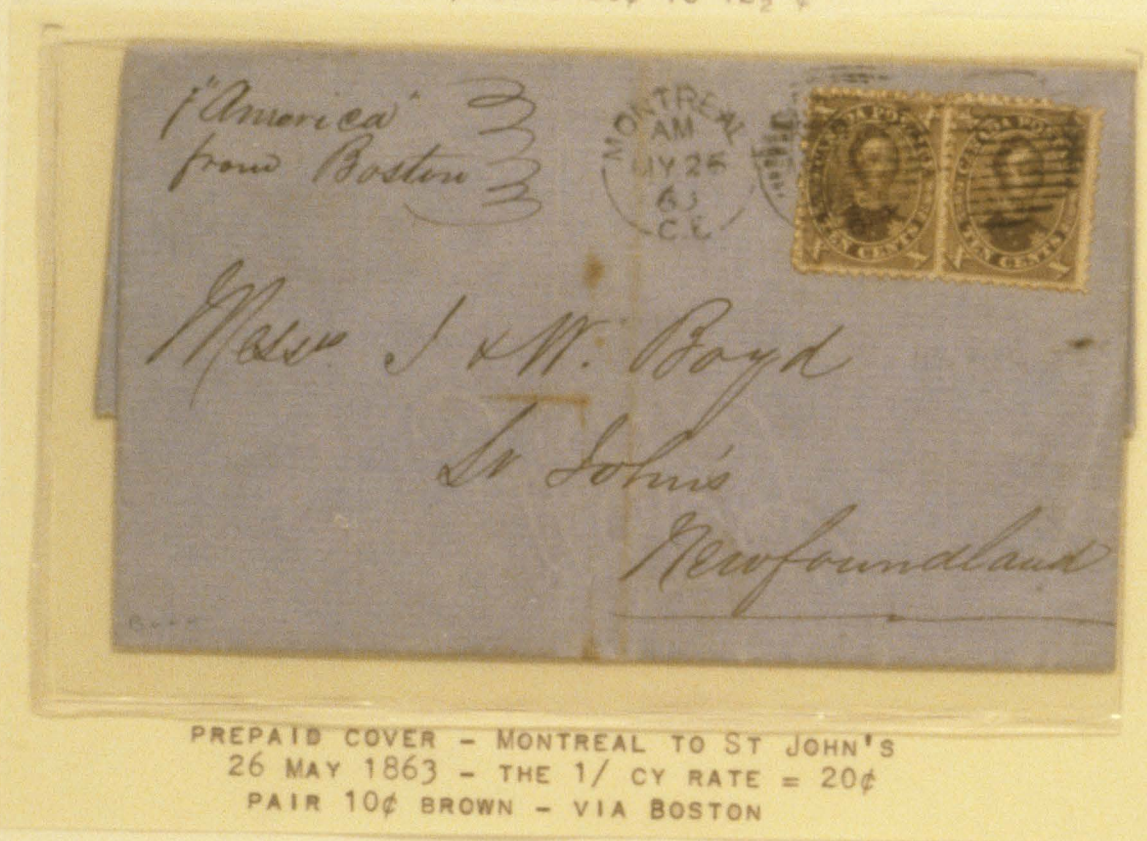 p "America"
from Boston
MONTREAL
AM
MY 26
63
C.E
CANADA POSTAGE
TEN CENTS
CANADA POSTAGE
TEN CENTS
Messrs J & W. Boyd
St John's
Newfoundland
PREPAID COVER - MONTREAL TO ST JOHN'S
26 MAY 1863 - THE 1/ CY RATE = 20¢
PAIR 10¢ BROWN - VIA BOSTON